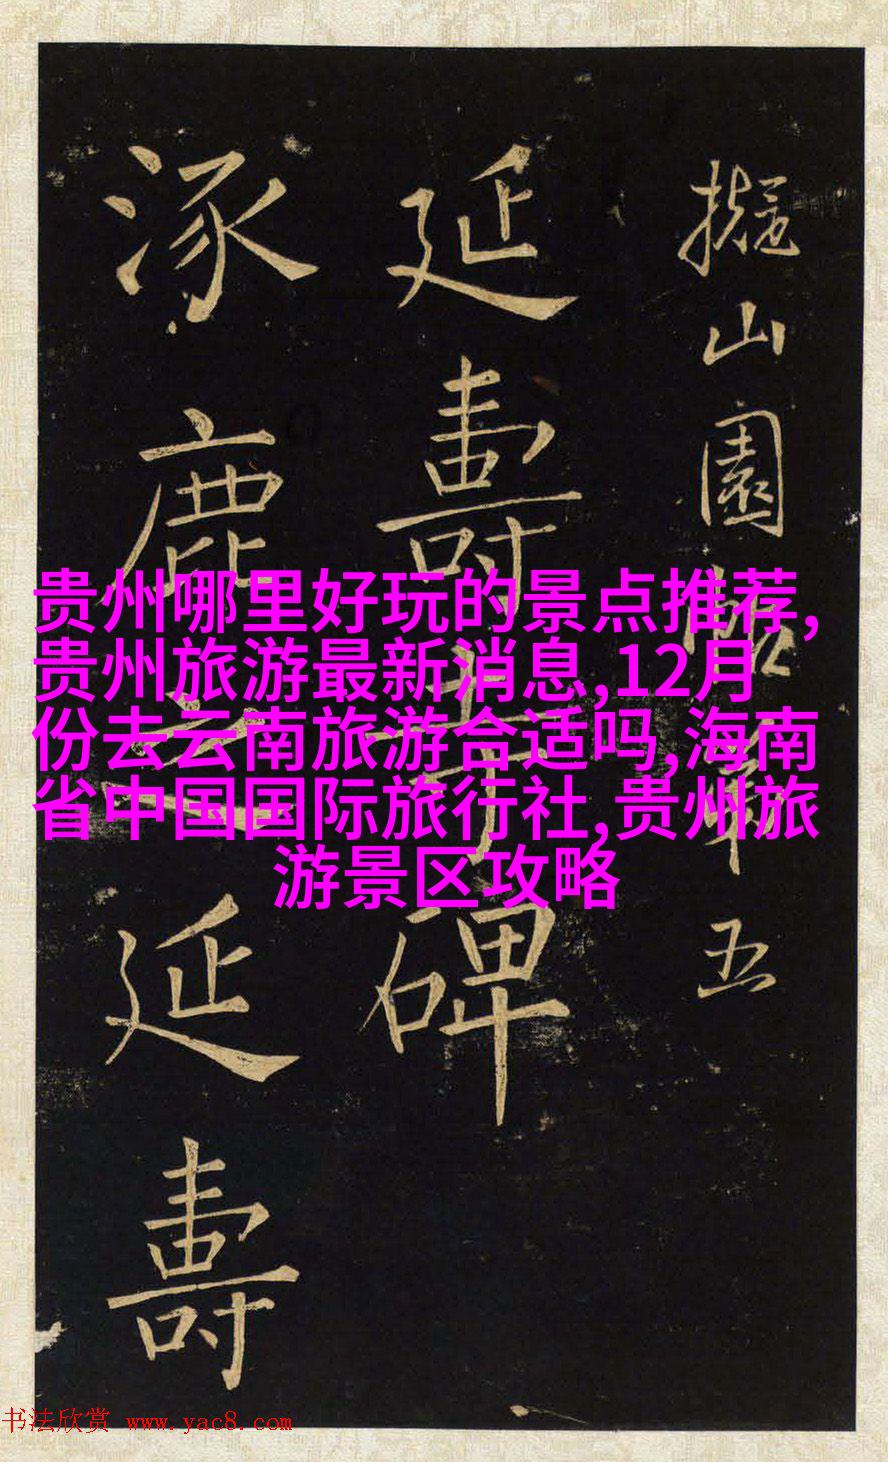 擬山園帖第五
延壽寺碑
涿鹿之延壽
贵州哪里好玩的景点推荐,
贵州旅游最新消息,12月
份去云南旅游合适吗,海南
省中国国际旅行社,贵州旅
游景区攻略
书法欣赏 www.yac8.com